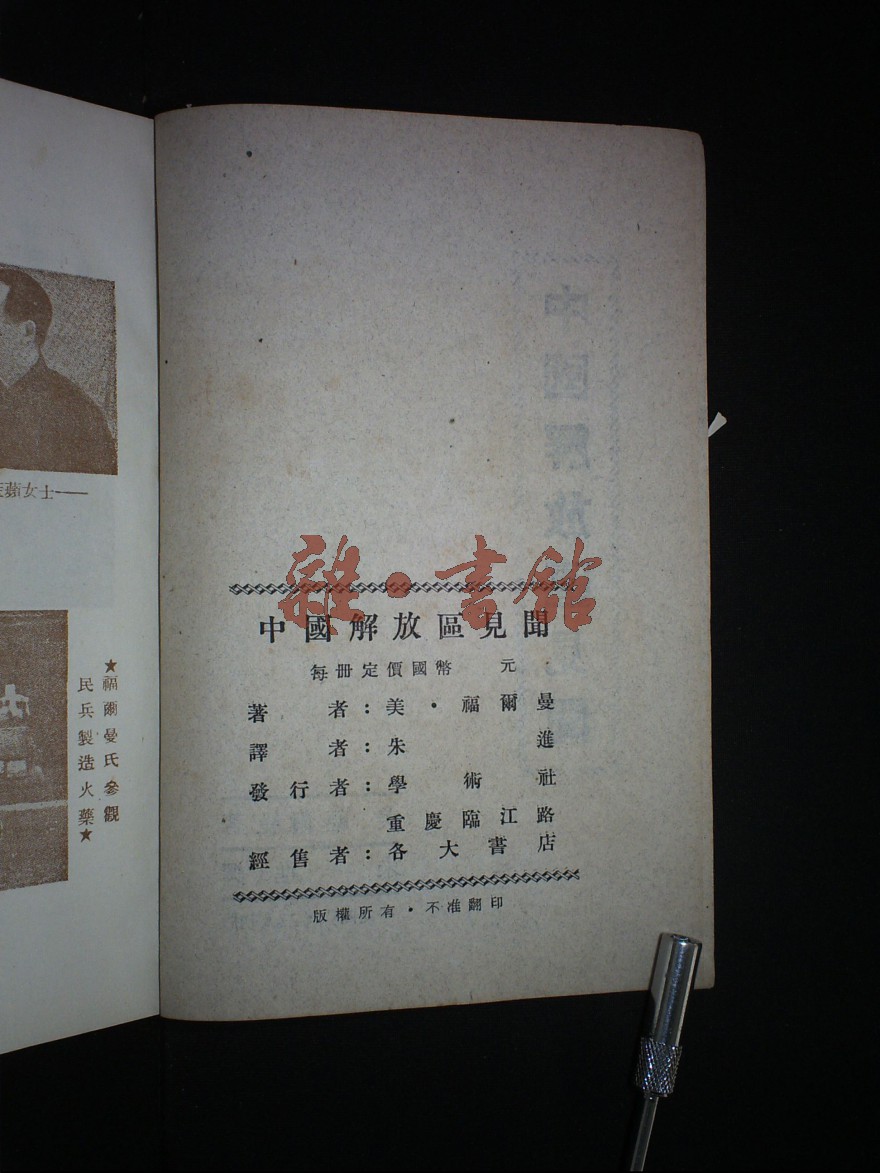 雜·書舘
中國解放區見聞
每册定價國幣 元
著者：美·福爾曼
譯者：朱進
發行者：學術社
重慶臨江路
經售者：各大書店
版權所有·不准翻印
女士——
★福爾曼氏參觀
民兵製造火藥★